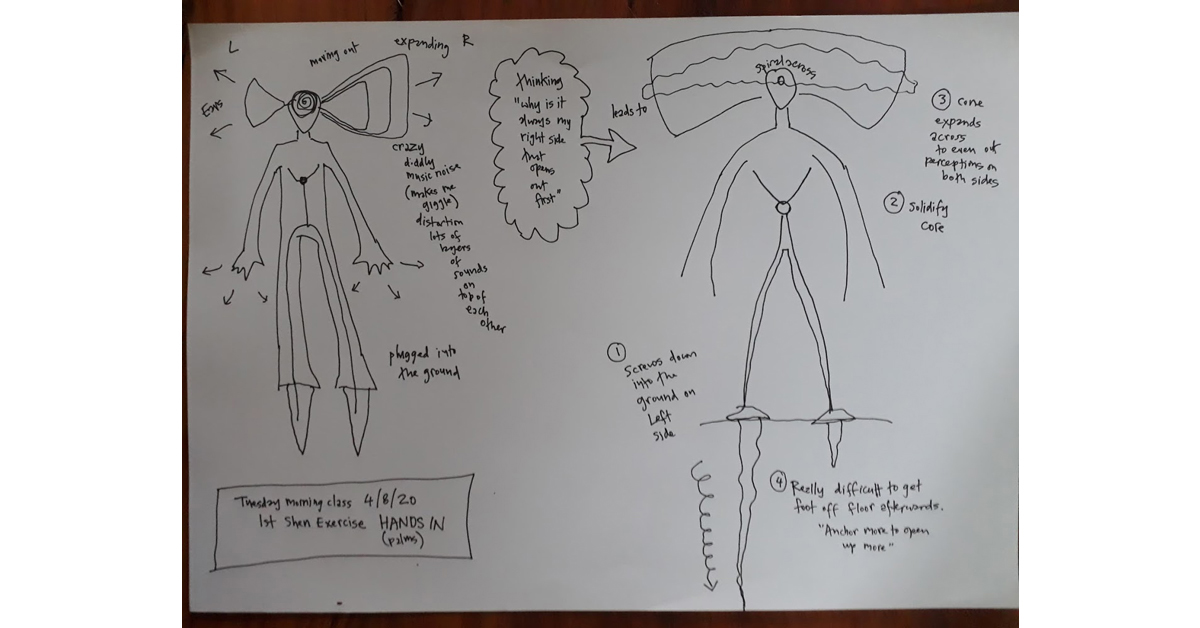 L
moving out
expanding R
Ears
crazy
diddly
music noise
(makes me
giggle)
distortion
lots of
layers
of
sounds
on
top of
each
other
plugged into
the ground
Tuesday morning class 4/8/20
1st Shen Exercise HANDS IN
(palms)
thinking
"why is it
always my
right side
that
opens
out
first"
leads to
spiral across
3 cone
expands
across
to even out
perceptions on
both sides
2 Solidify
core
1
Screws down
into the
ground on
Left
side
4 Really difficult to get
foot off floor afterwards.
"Anchor more to open
up more"